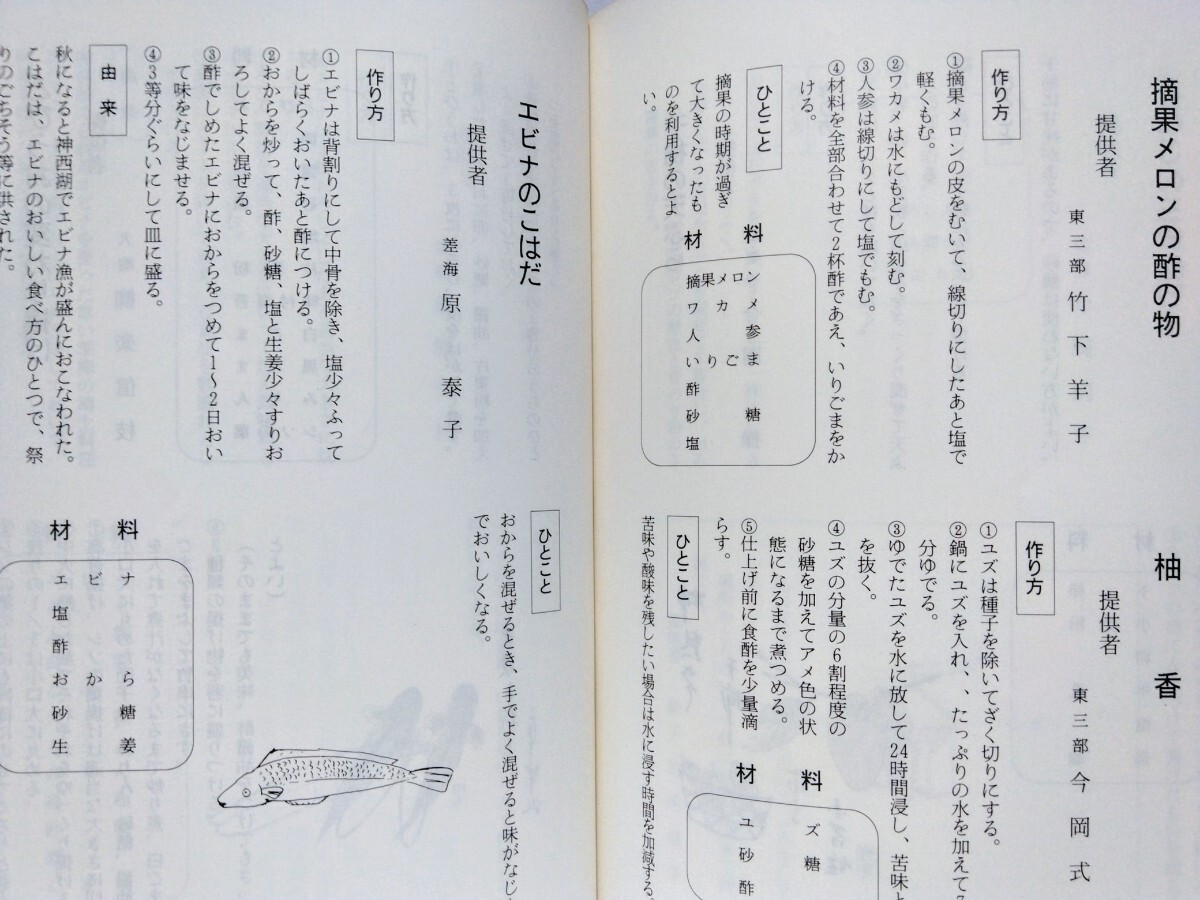 摘果メロンの酢の物
提供者
東三部 竹下羊子
作り方
①摘果メロンの皮をむいて、線切りにしたあと塩で
軽くもむ。
②ワカメは水にもどして刻む。
③人参は線切りにして塩でもむ。
④材料を全部合わせて2杯酢であえ、いりごまをか
ける。
ひとこと
摘果の時期が過ぎ
て大きくなったも
のを利用するとよ
い。
材料
摘果メロン
ワカメ
人参
いりごま
酢
砂糖
塩
柚香
提供者
東三部 今岡式
作り方
①ユズは種子を除いてざく切りにする。
②鍋にユズを入れ、、たっぷりの水を加えて
分ゆでる。
③ゆでたユズを水に放して24時間浸し、苦味と
を抜く。
④ユズの分量の6割程度の
砂糖を加えてアメ色の状
態になるまで煮つめる。
⑤仕上げ前に食酢を少量滴
らす。
ひとこと
苦味や酸味を残したい場合は水に浸す時間を加減する。
材料
ユズ
砂糖
酢
エビナのこはだ
提供者
差海 原泰子
作り方
①エビナは背割りにして中骨を除き、塩少々ふって
しばらくおいたあと酢につける。
②おからを炒って、酢、砂糖、塩と生姜少々すりお
ろしてよく混ぜる。
③酢でしめたエビナにおからをつめて1〜2日おい
て味をなじませる。
④3等分ぐらいにして皿に盛る。
由来
秋になると神西湖でエビナ漁が盛んにおこなわれた。
こはだは、エビナのおいしい食べ方のひとつで、祭
りのごちそう等に供された。
ひとこと
おからを混ぜるとき、手でよく混ぜると味がなじん
でおいしくなる。
材料
エビナ
塩
酢
おから
砂糖
生姜